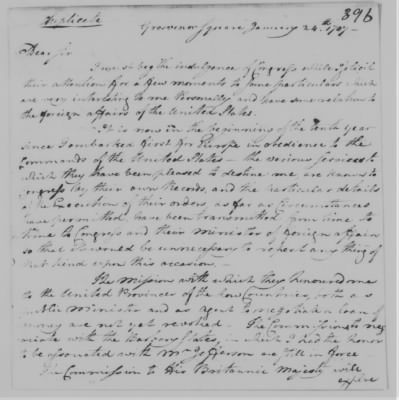 Duplicate
396
Grosvenor Square January 24th 1787
Dear Sir
I must beg the indulgence of Congress while I solicit
their attention for a few moments to some particulars which
are very interesting to me Personally and have some relation to
the foreign affairs of the United States.
It is now in the beginning of the Tenth year
since I embarked first for Europe in obedience to the
Commands of the United States — the various services to
which they have been pleased to destine me, are known to
Congress by their own Records, and the particular details
of the Execution of their orders, as far as circumstances
have permitted, have been transmitted from time to
time to Congress and their Minister of foreign affairs
so that it would be unnecessary to repeat any thing of
that kind upon this occasion. —
The Mission with which they honoured me
to the United Provinces of the Low Countries, both as
public Minister and as agent to negotiate a loan of
money are not yet revoked. The Commissions to neg
otiate with the Barbary States, in which I had the honor
to be associated with Mr. Jefferson are still in force
The Commission to His Britannic Majesty will
expire